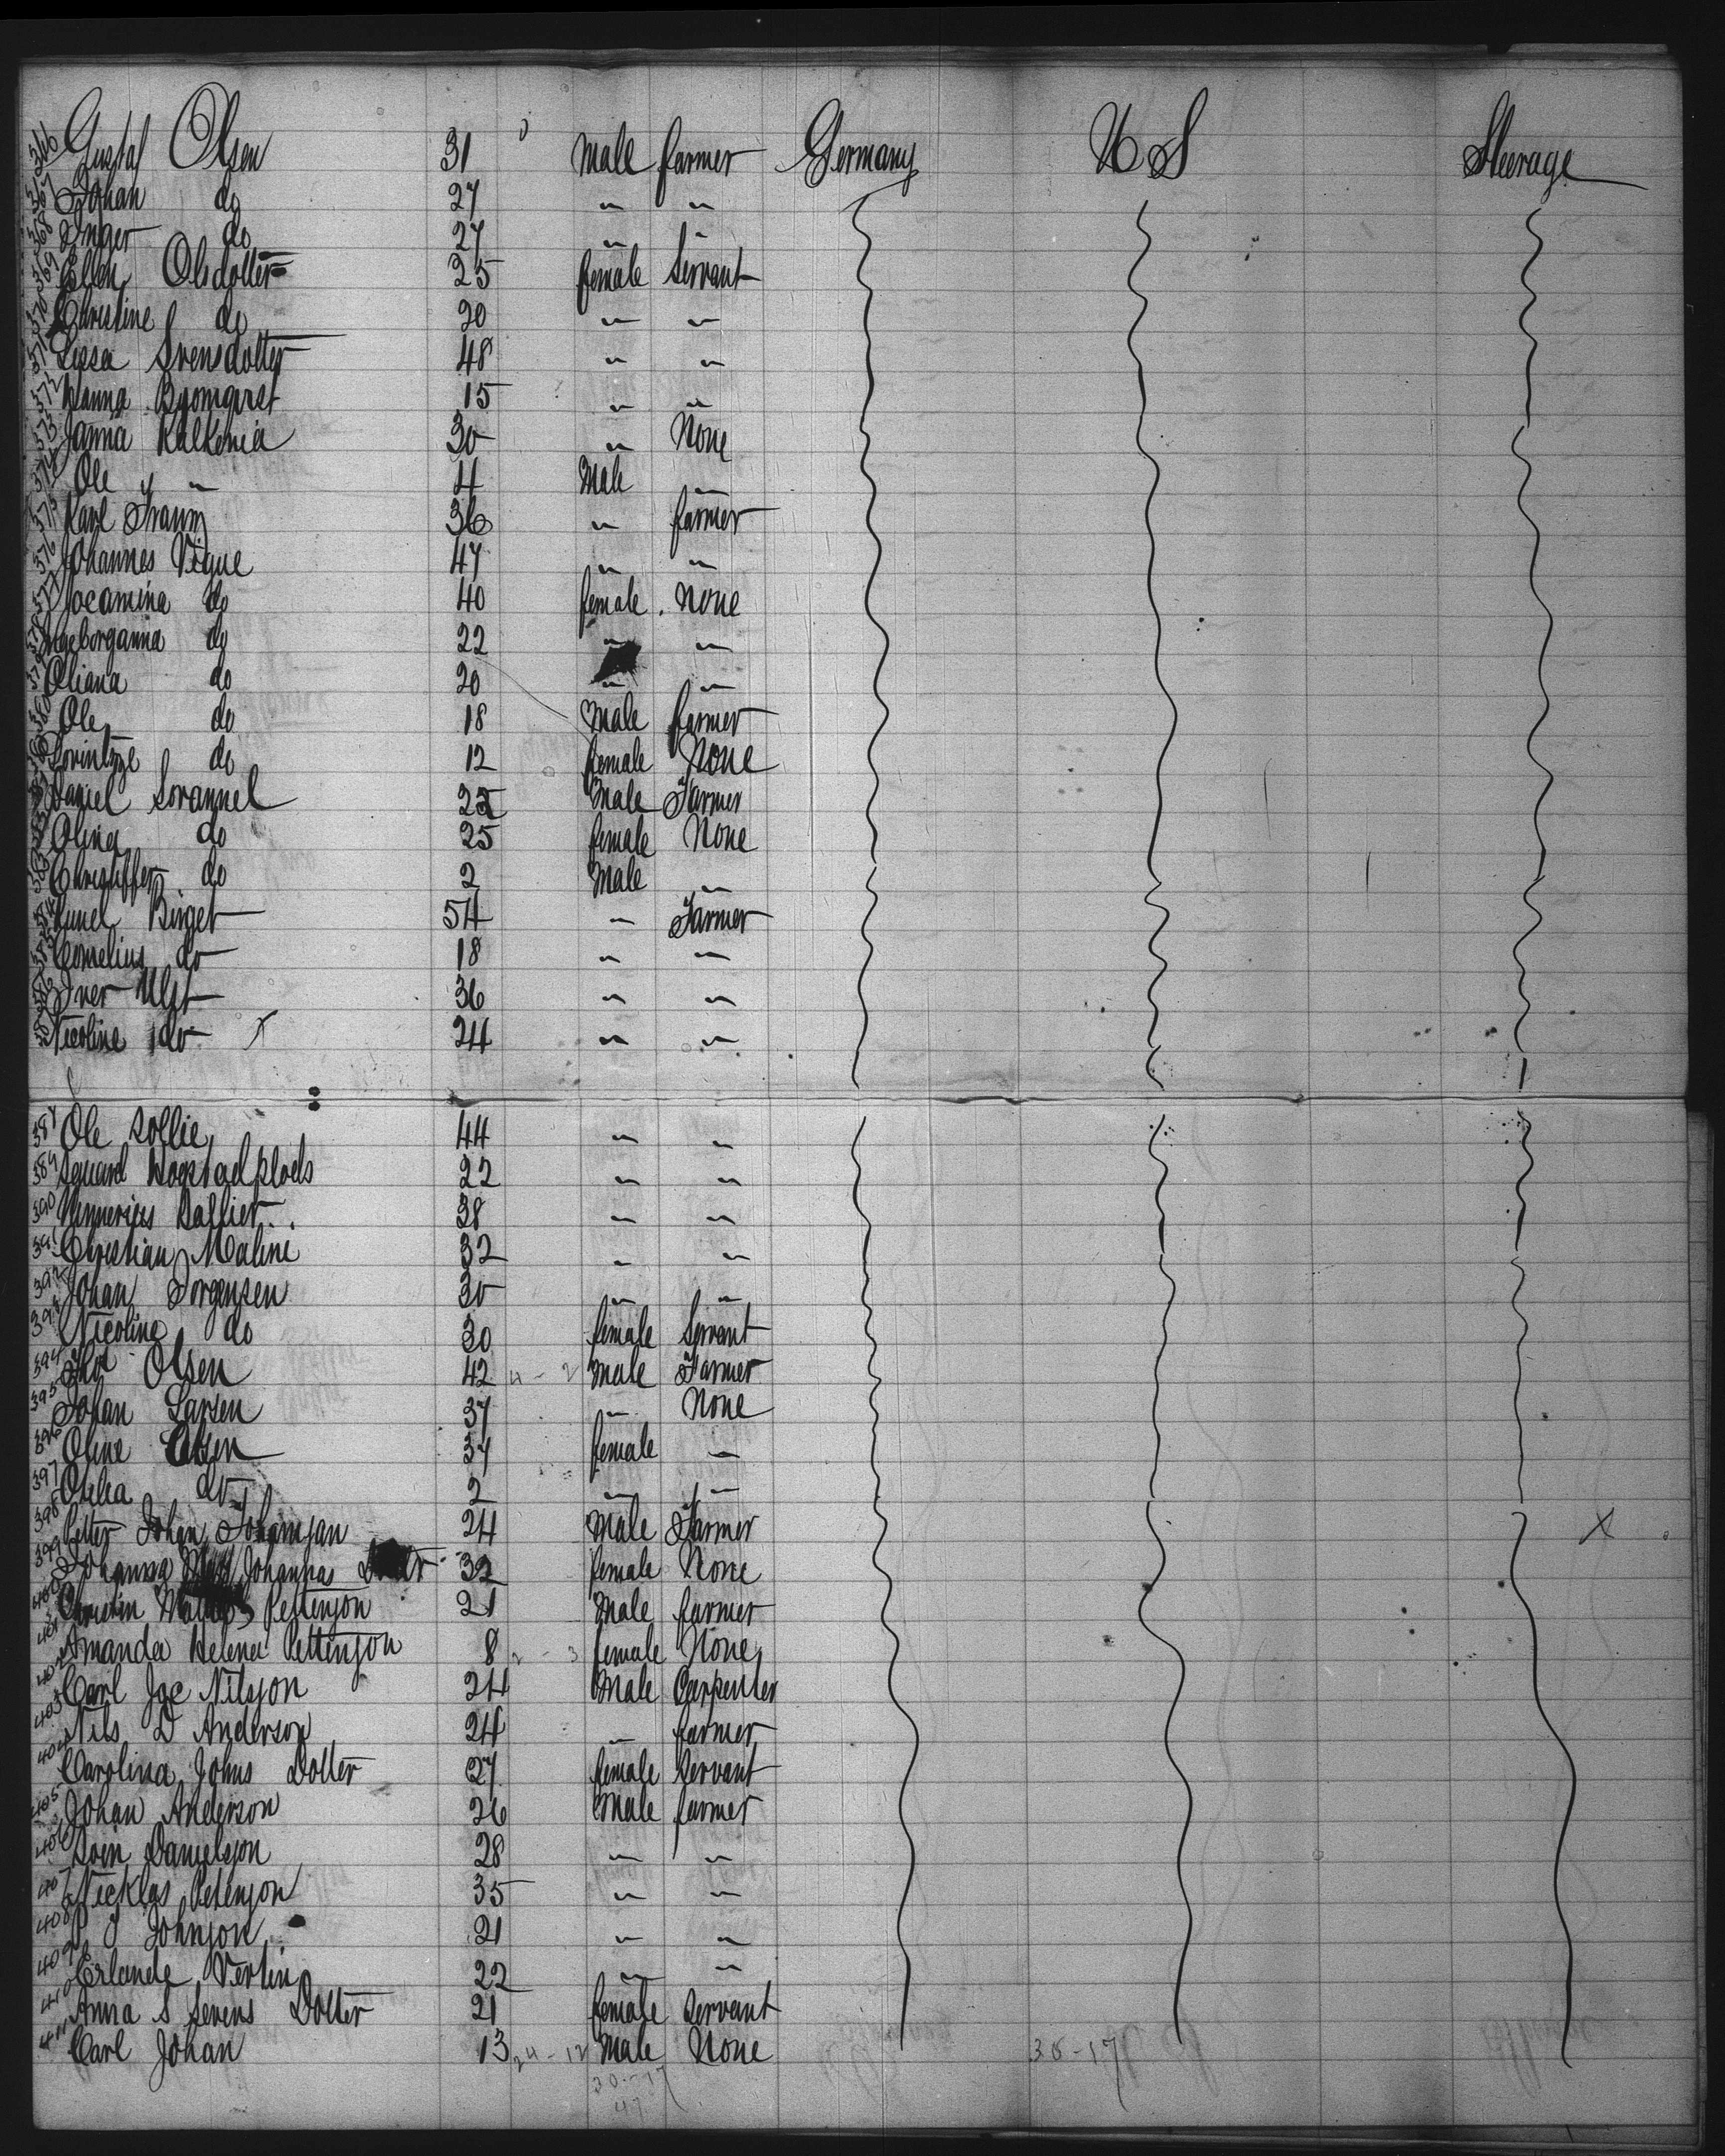 366 Gustaf Olsen 31 Male farmer Germany U S Steerage
367 Johan do 27 " "
368 Inger do 27 " "
369 Ellen Olsdotter 25 female Servant
370 Christine do 20 " "
371 Lissa Svensdotter 48 " "
372 Hanna 15 " "
373 Janna 30 " None
374 Ole " " 4 Male "
375 Karl 36 " farmer
376 Johannes Vigue 47 " "
377 Jocamina do 40 female None
378 Ingeborganna do 22 " "
379 Oliana do 20 " "
380 Ole do 18 Male farmer
do 12 female None
Daniel Sorannel 25 Male Farmer
Olina do 25 female None
Christiffer do 2 Male "
Birget 54 " Farmer
Cornelius do 18 " "
Iver 36 " "
Nicoline do X 24 " "
Ole Sollie 44 " "
389 22 " "
390 38 " "
391 Christian Maline 32 " "
392 Johan Jorgensen 30 " "
393 Nicoline do 30 female Servant
394 Olsen 42 4 - 2 Male Farmer
395 Johan Larsen 37 " None
396 Oline Olsen 34 female "
397 do 2 " "
398 Petter Johan Johansan 24 Male Farmer X
399 Johanna Johannas 32 female None
400 Pettersson 21 Male farmer
401 Amanda Helena Pettersson 8 2 - 3 female None
402 Carl Joc Nilsson 24 Male Carpenter
403 Nils D Anderson 24 " farmer
404 Carolina Johns Dotter 27 female Servant
405 Johan Anderson 26 Male farmer
406 Danielsson 28 " "
407 Nicklas Petersson 35 " "
408 Johnson 21 " "
409 22 " "
410 Anna S Svens Dotter 21 female Servant
411 Carl Johan 13 24 - 12 Male None 36 - 17
30 - 17
47